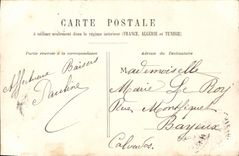 CARTE POSTALE
A utiliser seulement dans le régime intérieur (FRANCE, ALGÉRIE et TUNISIE)
Partie réservée à la correspondance
Adresse du Destinataire
Affectueux Baisers
Pauline
Mademoiselle
Marie Le Roy
Rue
Bayeux
Calvados